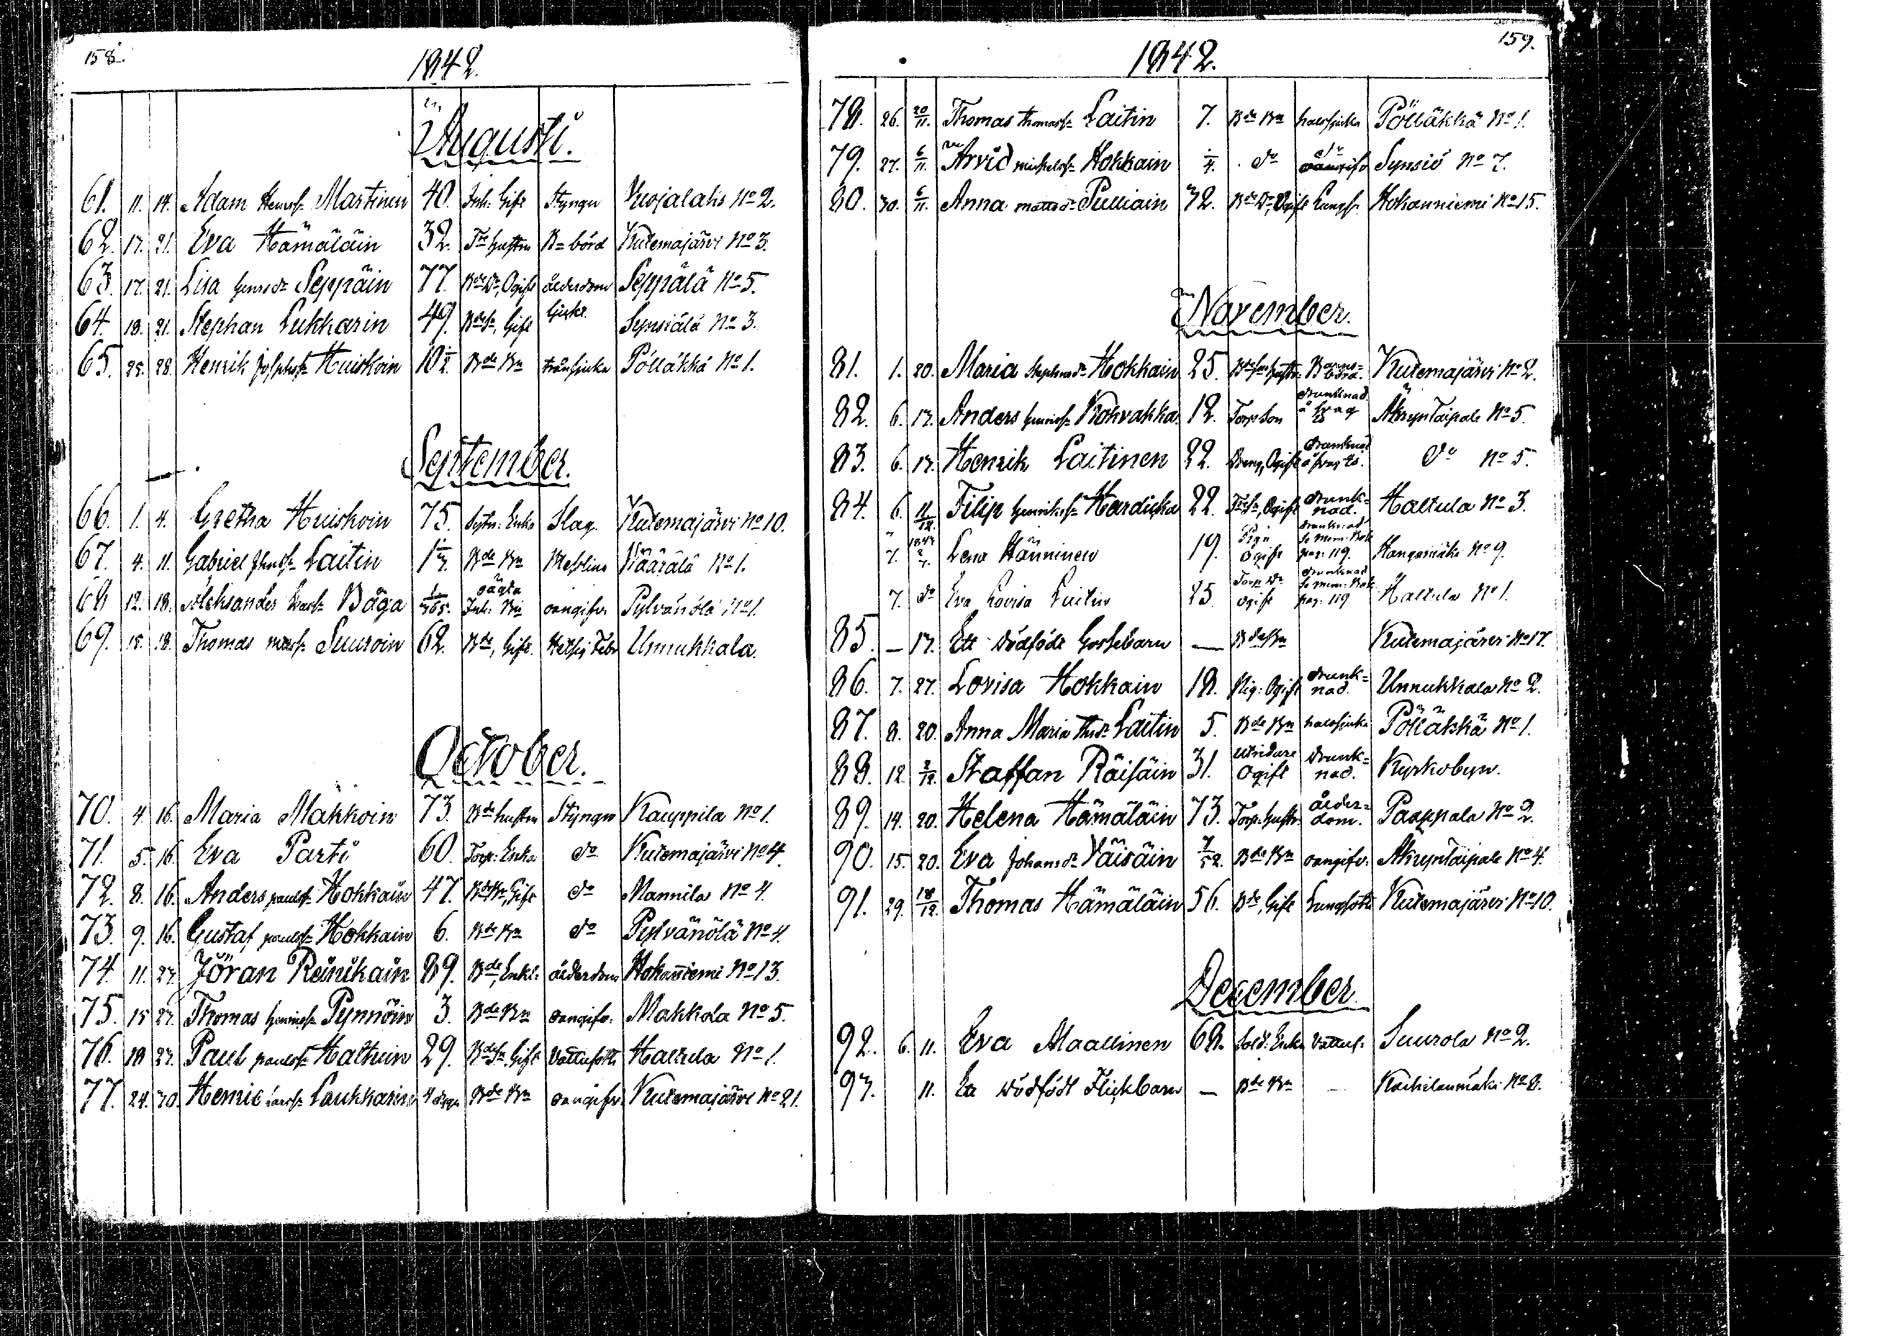 158.
1842.
Augusti.
61. 11. 14. Adam Henrss: Martinen 40. Inh: Gift Styngn Vuojalahi No 2.
62. 17. 21. Eva Hämäläin 32. Tr hustru Bn börd Kutemajärvi No 3.
63. 17. 21. Lisa Henrsdr Seppäin 77. Bde Dr, Ogift ålderdom Seppälä No 5.
64. 18. 21. Stephan Lukkarin 49. Bde Sn, Gift Synsiälä No 3.
65. 25. 28. Henrik Josephss: Huiskoin 10½ Bde Bn trånsjuka Pölläkkä No 1.
September.
66. 1. 4. Gretha Huiskoin 75. Sytn: Enka Slag. Kutemajärvi No 10.
67. 4. 11. Gabriel Laitin Bde Bn Messling Väärälä No 1.
68 12. 18. Aleksander Båga 1/365. oäkta Inh: Bn oangifv. Pylvänölä No 1.
69. 15. 18. Thomas matss: Suuroin 62. Bde, Gift. Hetsig Feber Unnukkala.
October.
70. 4. 16. Maria Makkoin 73. Bde hustru Styngn Kauppila No 1.
71. 5. 16. Eva Parti 60. Torp: Enka do Kutemajärvi No 4.
72. 8. 16. Anders paulss: Hokkain 47. Gift do Mannila No 4.
73. 9. 16. Gustaf paulss: Hokkain 6. Bde Bn do Pylvänölä No 4.
74. 11. 27. Jöran Reinikain 89. Bde, Enkl: ålderdom Hohanniemi No 13.
75. 15 27. Thomas Henricss: Pynnöin 3. Bde Bn oangifv. Makkola No 5.
76. 18 27. Paul paulss: Halttuin 29. Bde Sn, Gift Vattusott Haltula No 1.
77. 24. 30. Henric Larss: Laukkarin 4 dygn Bde Bn oangifv. Kutemajärvi No 21.
159.
1842.
78. 26. 20/11. Thomas thomass: Laitin 7. Bde Bn halssjuka Pölläkkä No 1.
79. 27. 6/11. Arvid mickelss: Hokkain ¼. do oangifv Synsiö No 7.
80. 30. 6/11. Anna mattsdr Pulliain 32. Bde Dr, Ogift Lungs: Hohanniemi No 15.
November.
81. 1. 20. Maria Stephansdr Hokkain 25. hustru Barnsbörd. Kutemajärvi No 2.
82. 6. 13. Anders Henricss: Kohvakka 12. Torp: Son drunknad å svag is Äkryntaipale No 5.
83. 6. 13. Henrik Laitinen 22. Dreng, Ogift drunknad å svag is. do No 5.
84. 6. 11/12. Filip Henrikss: Hardicka 22. Ogift drunknad. Haltula No 3.
7. Lena Hänninen 19. Piga Ogift drunknad Se mem: Bok pag: 119. Hangasmäki No 9.
7. do Eva Lovisa Laitin 25. Torp: Dr Ogift drunknad Se mem: Bok pag: 119 Haltula No 1.
85. — 17. Ett dödfödt Gossebarn — Bde Bn Kutemajärvi No 17.
86. 7. 27. Lovisa Hokkain 18. Pig: Ogift drunknad. Unnukkala No 2.
87. 8. 20. Anna Maria Laitin 5. Bde Bn halssjuka Pölläkkä No 1.
88. 12. Staffan Räisäin 31. Ogift drunknad. Kyrkobyn.
89. 14. 20. Helena Hämäläin 73. Torp: hustr: ålderdom. Paappala No 2.
90. 15. 20. Eva Johansdr Väisäin 7/52. Bde Bn oangifv. Äkryntaipale No 4.
91. 29. 18/12. Thomas Hämäläin 56. Bde, Gift Lungsot Kutemajärvi No 10.
December.
92. 6. 11. Eva Maallinen 68. Sold: Enka Vattus: Suurola No 2.
93. 11. Ett dödfödt Flickbarn — Bde Bn — Kaihilanmäki No 8.